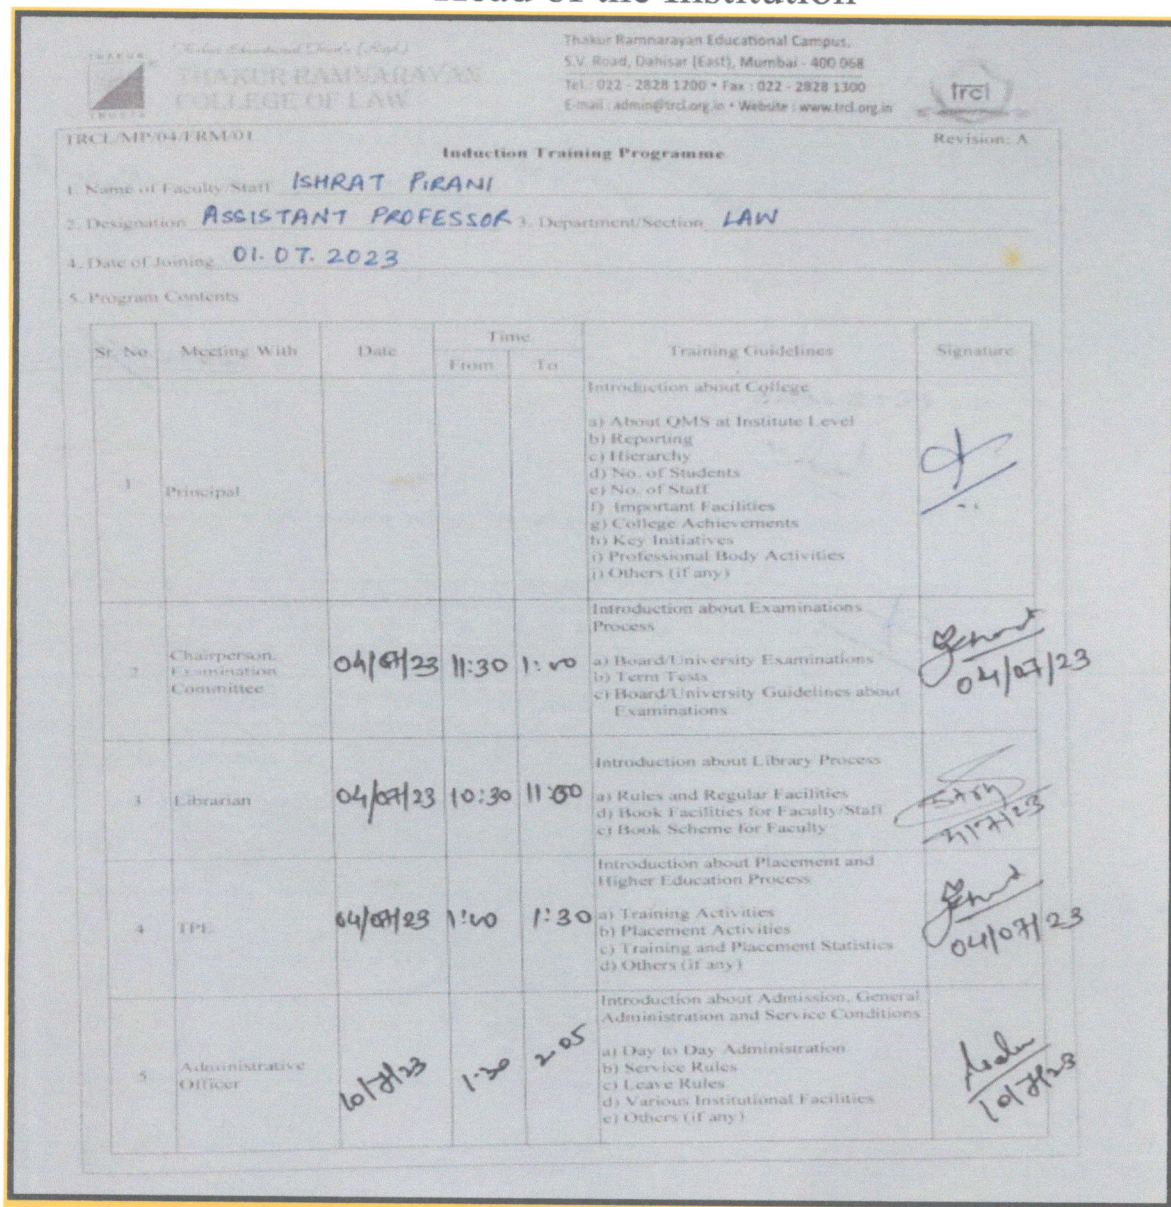 Head of the Institution
THAKUR
TRUSTS
THAKUR RAMNARAYAN
COLLEGE OF LAW
Thakur Ramnarayan Educational Campus,
S.V. Road, Dahisar (East), Mumbai - 400 068
Tel.: 022 - 2828 1200 • Fax : 022 - 2828 1300
E-mail : admin@trcl.org.in • Website : www.trcl.org.in
trcl
TRCL/MP/04/FRM/01 Revision: A
Induction Training Programme
1. Name of Faculty/Staff ISHRAT PIRANI
2. Designation ASSISTANT PROFESSOR 3. Department/Section LAW
4. Date of Joining 01.07.2023
5. Program Contents
Sr. No. Meeting With Date Time Training Guidelines Signature
From To
1 Principal
Introduction about College
a) About QMS at Institute Level
b) Reporting
c) Hierarchy
d) No. of Students
e) No. of Staff
f) Important Facilities
g) College Achievements
h) Key Initiatives
i) Professional Body Activities
j) Others (if any)
2 Chairperson,
Examination
Committee
04/07/23 11:30 1:00
Introduction about Examinations
Process
a) Board/University Examinations
b) Term Tests
c) Board/University Guidelines about
Examinations
04/07/23
3 Librarian 04/07/23 10:30 11:00
Introduction about Library Process
a) Rules and Regular Facilities
d) Book Facilities for Faculty/Staff
c) Book Scheme for Faculty
4 TPE 04/07/23 1:00 1:30
Introduction about Placement and
Higher Education Process
a) Training Activities
b) Placement Activities
c) Training and Placement Statistics
d) Others (if any)
04/07/23
5 Administrative
Officer
10/7/23 1.30 2.05
Introduction about Admission, General
Administration and Service Conditions
a) Day to Day Administration
b) Service Rules
c) Leave Rules
d) Various Institutional Facilities
e) Others (if any)
10/7/23